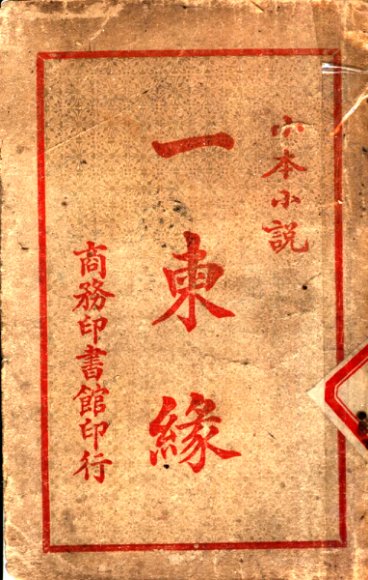 小本小說
一柬緣
商務印書館印行